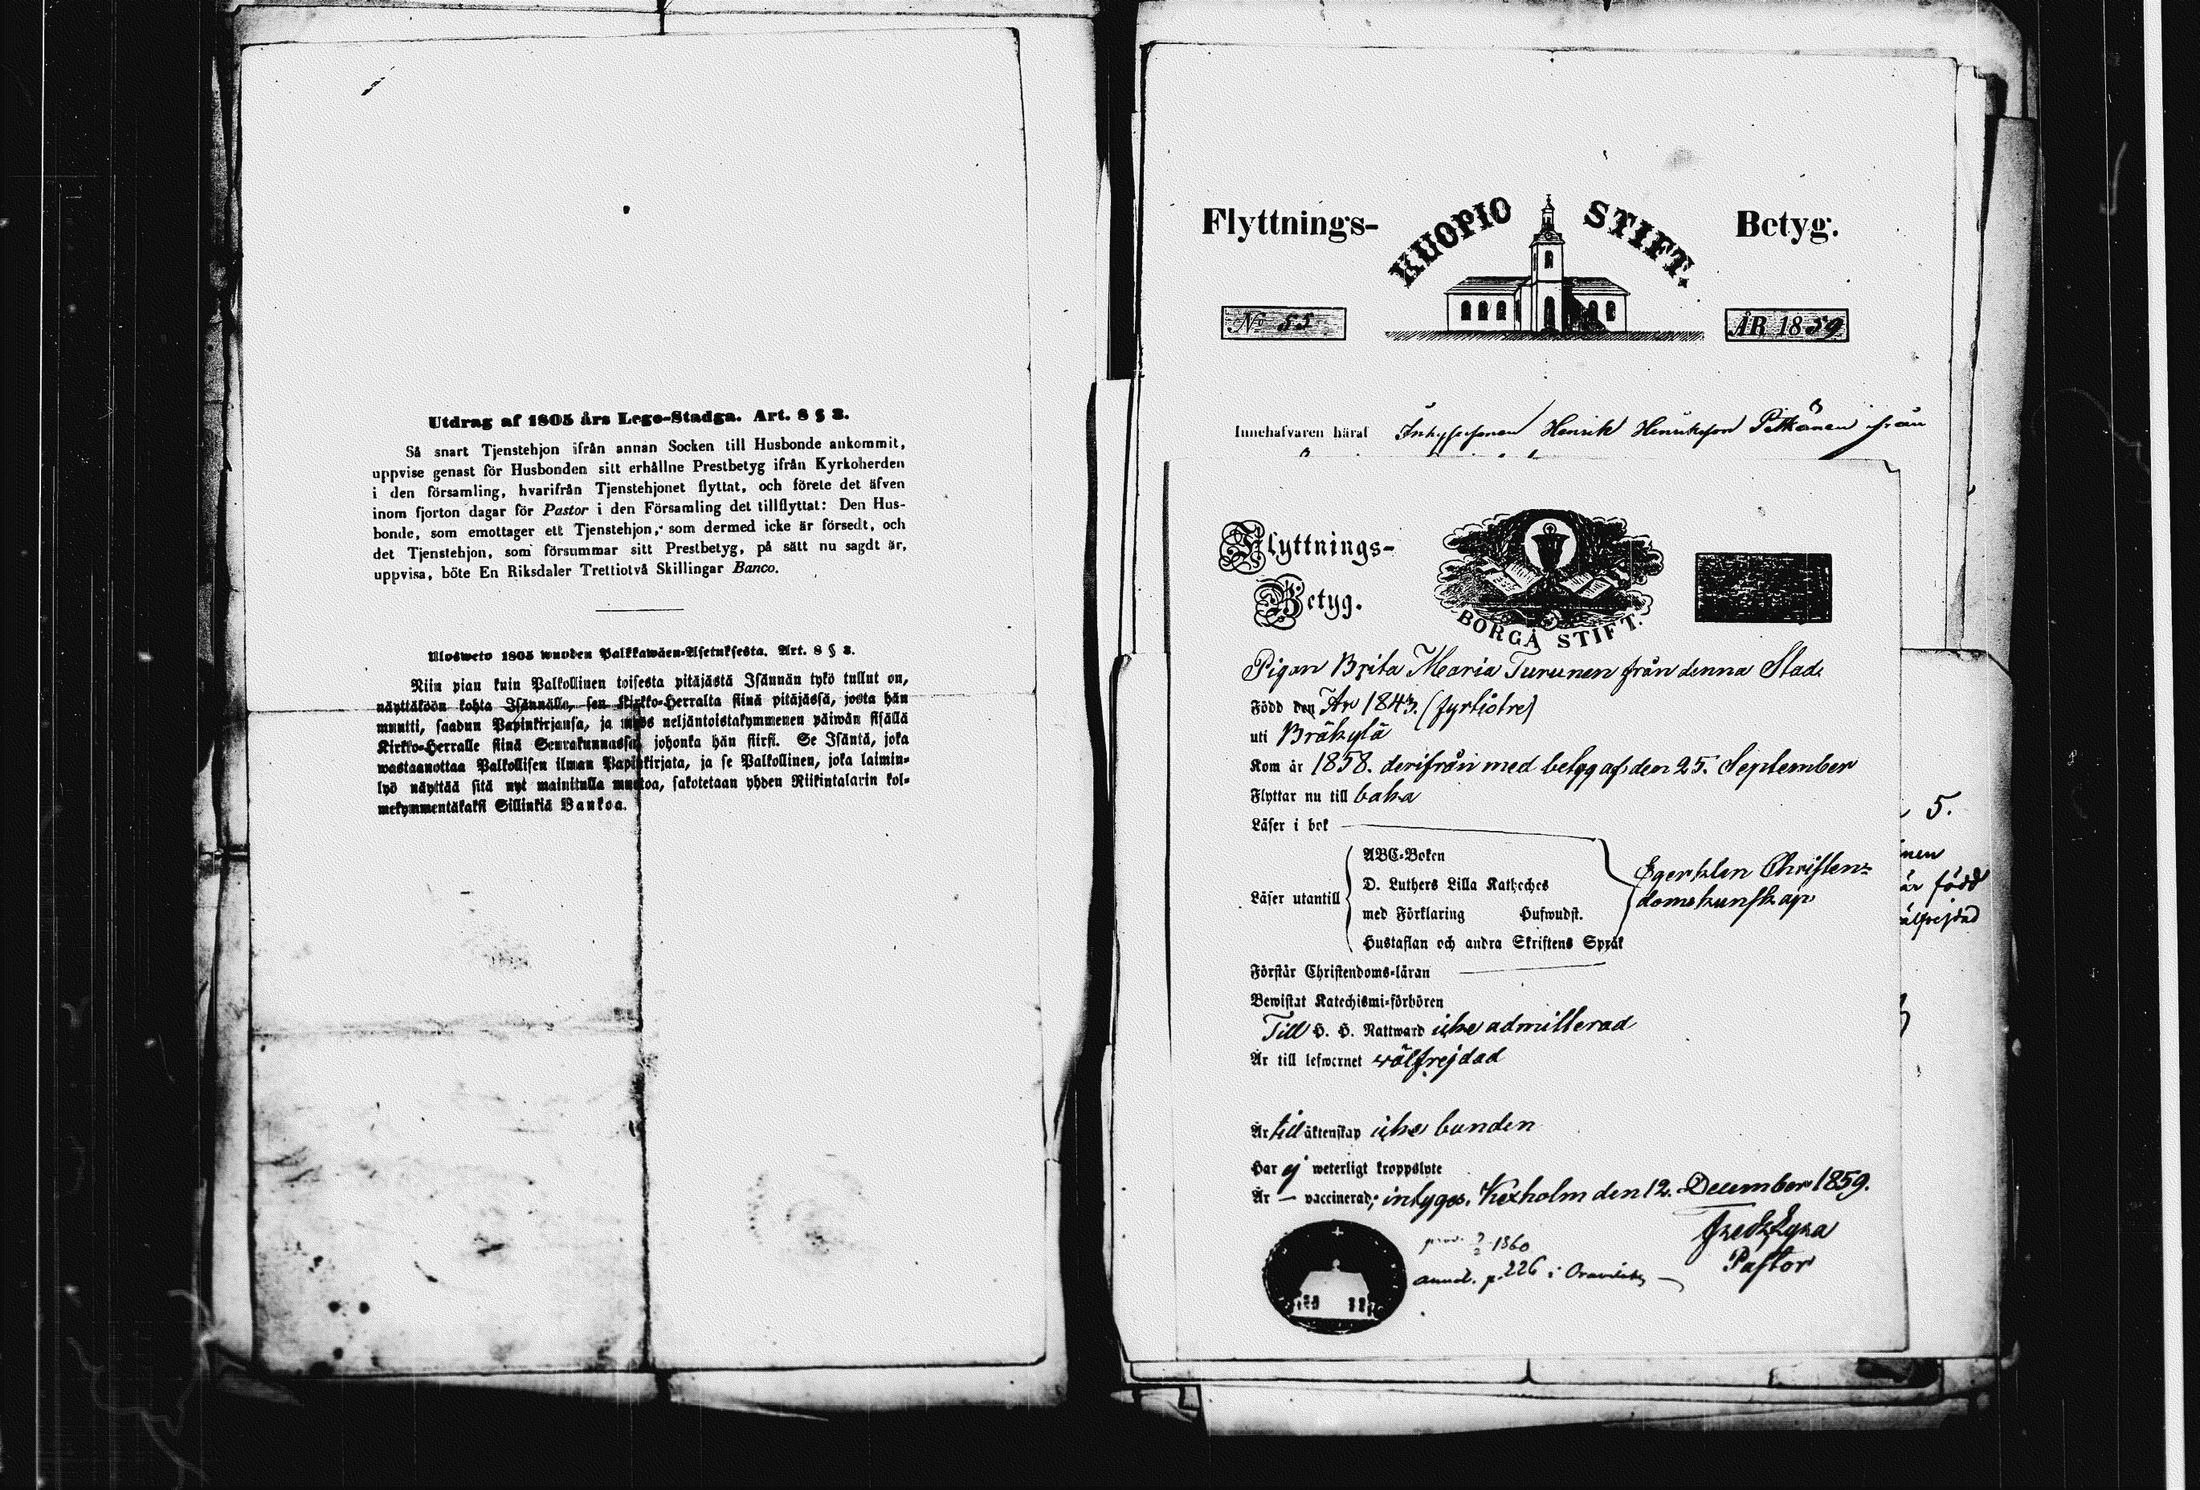 Utdrag af 1805 års Lego-Stadga. Art. 8 § 2.
Så snart Tjenstehjon ifrån annan Socken till Husbonde ankommit,
uppvise genast för Husbonden sitt erhållne Prestbetyg ifrån Kyrkoherden
i den församling, hvarifrån Tjenstehjonet flyttat, och förete det äfven
inom fjorton dagar för Pastor i den Församling det tillflyttat: Den Hus-
bonde, som emottager ett Tjenstehjon, som dermed icke är försedt, och
det Tjenstehjon, som försummar sitt Prestbetyg, på sätt nu sagdt är,
uppvisa, böte En Riksdaler Trettiotvå Skillingar Banco.
Ulosweto 1805 wuoden Palkkawäen-Asetuksesta. Art. 8 § 2.
Niin pian kuin Palkollinen toisesta pitäjästä Isännän tykö tullut on,
näyttäköön kohta Isännälle, sen Kirkko-Herralta siinä pitäjässä, josta hän
muutti, saadun Papinkirjansa, ja myös neljäntoistakymmenen päiwän sisällä
Kirkko-Herralle siinä Seurakunnassa, johonka hän siirsi. Se Isäntä, joka
wastaanottaa Palkollisen ilman Papinkirjata, ja se Palkollinen, joka laimin-
lyö näyttää sitä nyt mainitulla muotoa, sakotetaan yhden Riikintalarin kol-
mekymmentäkaksi Sillinkiä Bankoa.
Flyttnings- KUOPIO STIFT. Betyg.
No 55 ÅR 1859
Innehafvaren häraf Inhysesonen Henrik Henriksson Pitkänen ifrån
Flyttnings-
Betyg.
BORGÅ STIFT.
Pigan Brita Maria Turunen från denna Stad
Född den År 1843. (fyrtiotre)
uti Bräkylä
Kom år 1858. derifrån med betyg af den 25. September
Flyttar nu till baka
Läser i bok
Läser utantill
ABC-Boken
D. Luthers Lilla Katheches
med Förklaring Hufwudst.
Hustaflan och andra Skriftens Språk
Eger klen Christen-
domskunskap
Förstår Christendoms-läran
Bewistat Katechismi-förhören
Till H. H. Nattward icke admitterad
Är till lefwernet wälfrejdad
Är till äktenskap icke bunden
Har ej weterligt kroppslyte
Är — vaccinerad; intygas. Kexholm den 12. December 1859.
Pastor
1860
annot. p. 226 i
5.
nen
är född
älfrejdad